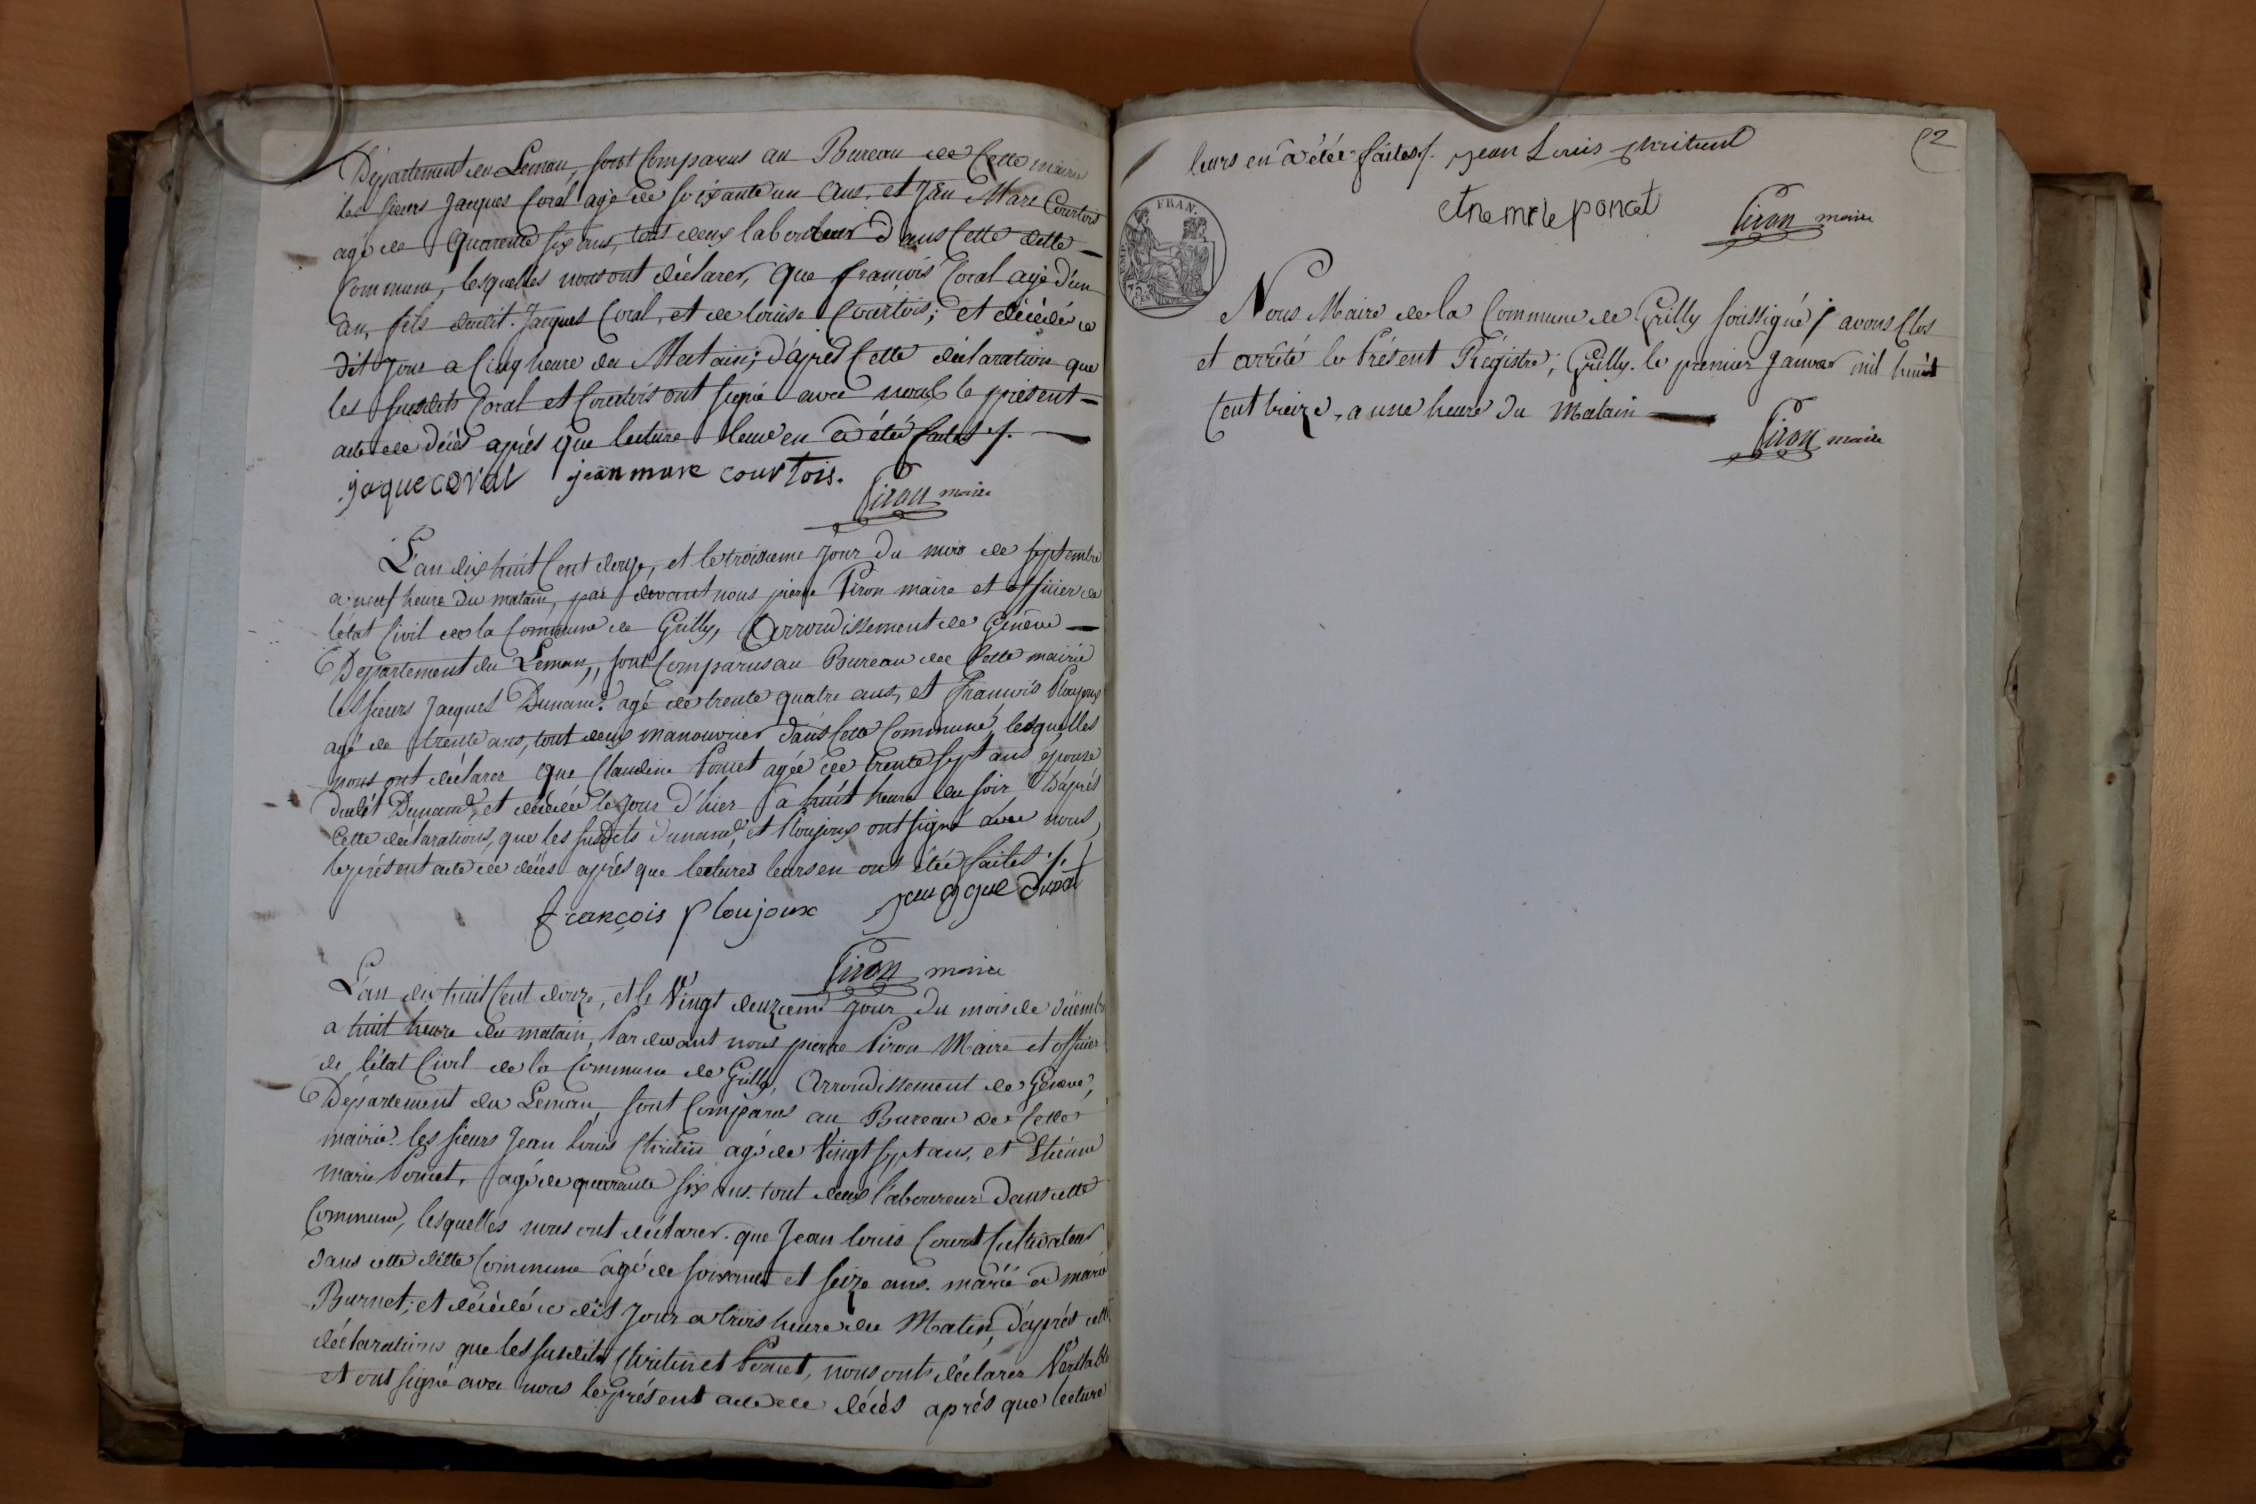 Département du Leman, sont Comparus au Bureau de Cette mairie
les sieurs Jacques Coral agé de soixante un ans, et Jean Marc Courtois
agé de quarente six ans, tout deux laboureur dans Cette ditte
Commune, lesquelles nous ont déclarer, que françois Coral agé d'un
an, fils dudit Jacques Coral, et de louise Courtois; et décédé ce
dit Jour a Cinq heure du Matain; d'après Cette déclaration que
les susdits Coral et Courtois ont signé avec nous le présent
acte de décès après que lecture leur en a été faites ./.
jaque coral jean marc courtois.
Piron maire
L'an dix huit Cent douze, et le troisieme Jour du mois de septembre
a neuf heure du matain, par devant nous pierre Piron maire et officier de
letat Civil de la Commune de Grilly, Arrondissement de Genève
Département du Leman, sont Comparus au Bureau de Cette mairie
les sieurs Jacques Dunand agé de trente quatre ans, et François Ploujoux
agé de trente ans, tout deux manouvrier dans Cette Commune, lesquelles
nous ont déclarer que Claudine Poncet agée de trente sept ans épouse
dudit Dunand, et décédée le Jour d'hier a huit heure du soir D'après
Cette déclarations, que les susdits Dunand, et Ploujoux ont signé avec nous,
le présent acte de décès après que lectures leurs en ont étée faites ./.
françois ploujoux
Piron maire
L'an dix huit Cent douze, et le Vingt deuzieme Jour du mois de décembre
a huit heure du matain, Par devant nous pierre Piron Maire et officier
de l'état Civil de la Commune de Grilly, Arrondissement de Genève,
Département du Leman, sont Comparus au Bureau de Cette
mairie les sieurs Jean Louis Chritin agé de Vingt sept ans, et Etiénne
marie Poncet, agé de quarante six ans tout deux laboureur dans cette
Commune, lesquelles nous ont déclarer que Jean louis Cultivateur
dans cette ditte Commune agé de soixante et seize ans. marié a marie
Burnet; et décédé ce dit Jour a trois heure du Matin, d'après cette
déclarations que les susdits Chritin et Poncet, nous onts déclarer Veritable
et ont signé avec nous le présent acte de décès après que lecture
52
leurs en a étée faites ./. Jean Louis
etne mrie poncet
Piron maire
FRAN.
Nous Maire de la Commune de Grilly soussigné avons Clos
et arrêté le Présent Régistre; Grilly. le premier Janvier mil huit
Cent treize, a une heure du Matain
Piron maire